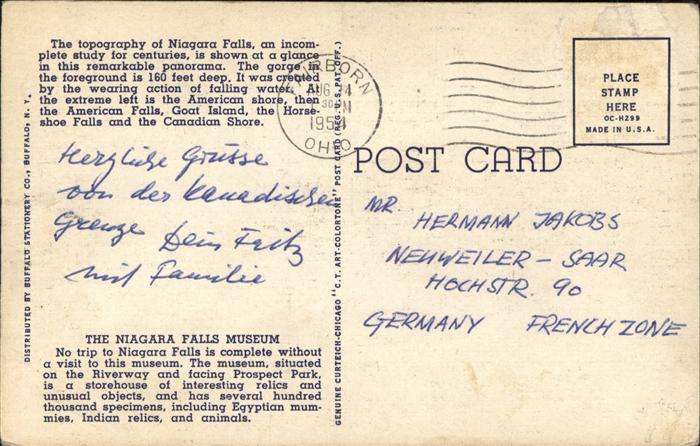 The topography of Niagara Falls, an incom-
plete study for centuries, is shown at a glance
in this remarkable panorama. The gorge in
the foreground is 160 feet deep. It was created
by the wearing action of falling water. At
the extreme left is the American shore, then
the American Falls, Goat Island, the Horse-
shoe Falls and the Canadian Shore.
Herzliche Grüsse
von der Kanadischen
Grenze Dein Fritz
mit Familie
THE NIAGARA FALLS MUSEUM
No trip to Niagara Falls is complete without
a visit to this museum. The museum, situated
on the Riverway and facing Prospect Park,
is a storehouse of interesting relics and
unusual objects, and has several hundred
thousand specimens, including Egyptian mum-
mies, Indian relics, and animals.
DISTRIBUTED BY BUFFALO STATIONERY CO., BUFFALO, N. Y.
GENUINE CURTEICH-CHICAGO "C.T. ART-COLORTONE" POST CARD (REG. U.S. PAT. OFF.)
AUG
OHIO
PLACE
STAMP
HERE
OC-H299
MADE IN U.S.A.
POST CARD
MR.
HERMANN JAKOBS
NEUWEILER – SAAR
HOCHSTR. 90
GERMANY FRENCH ZONE